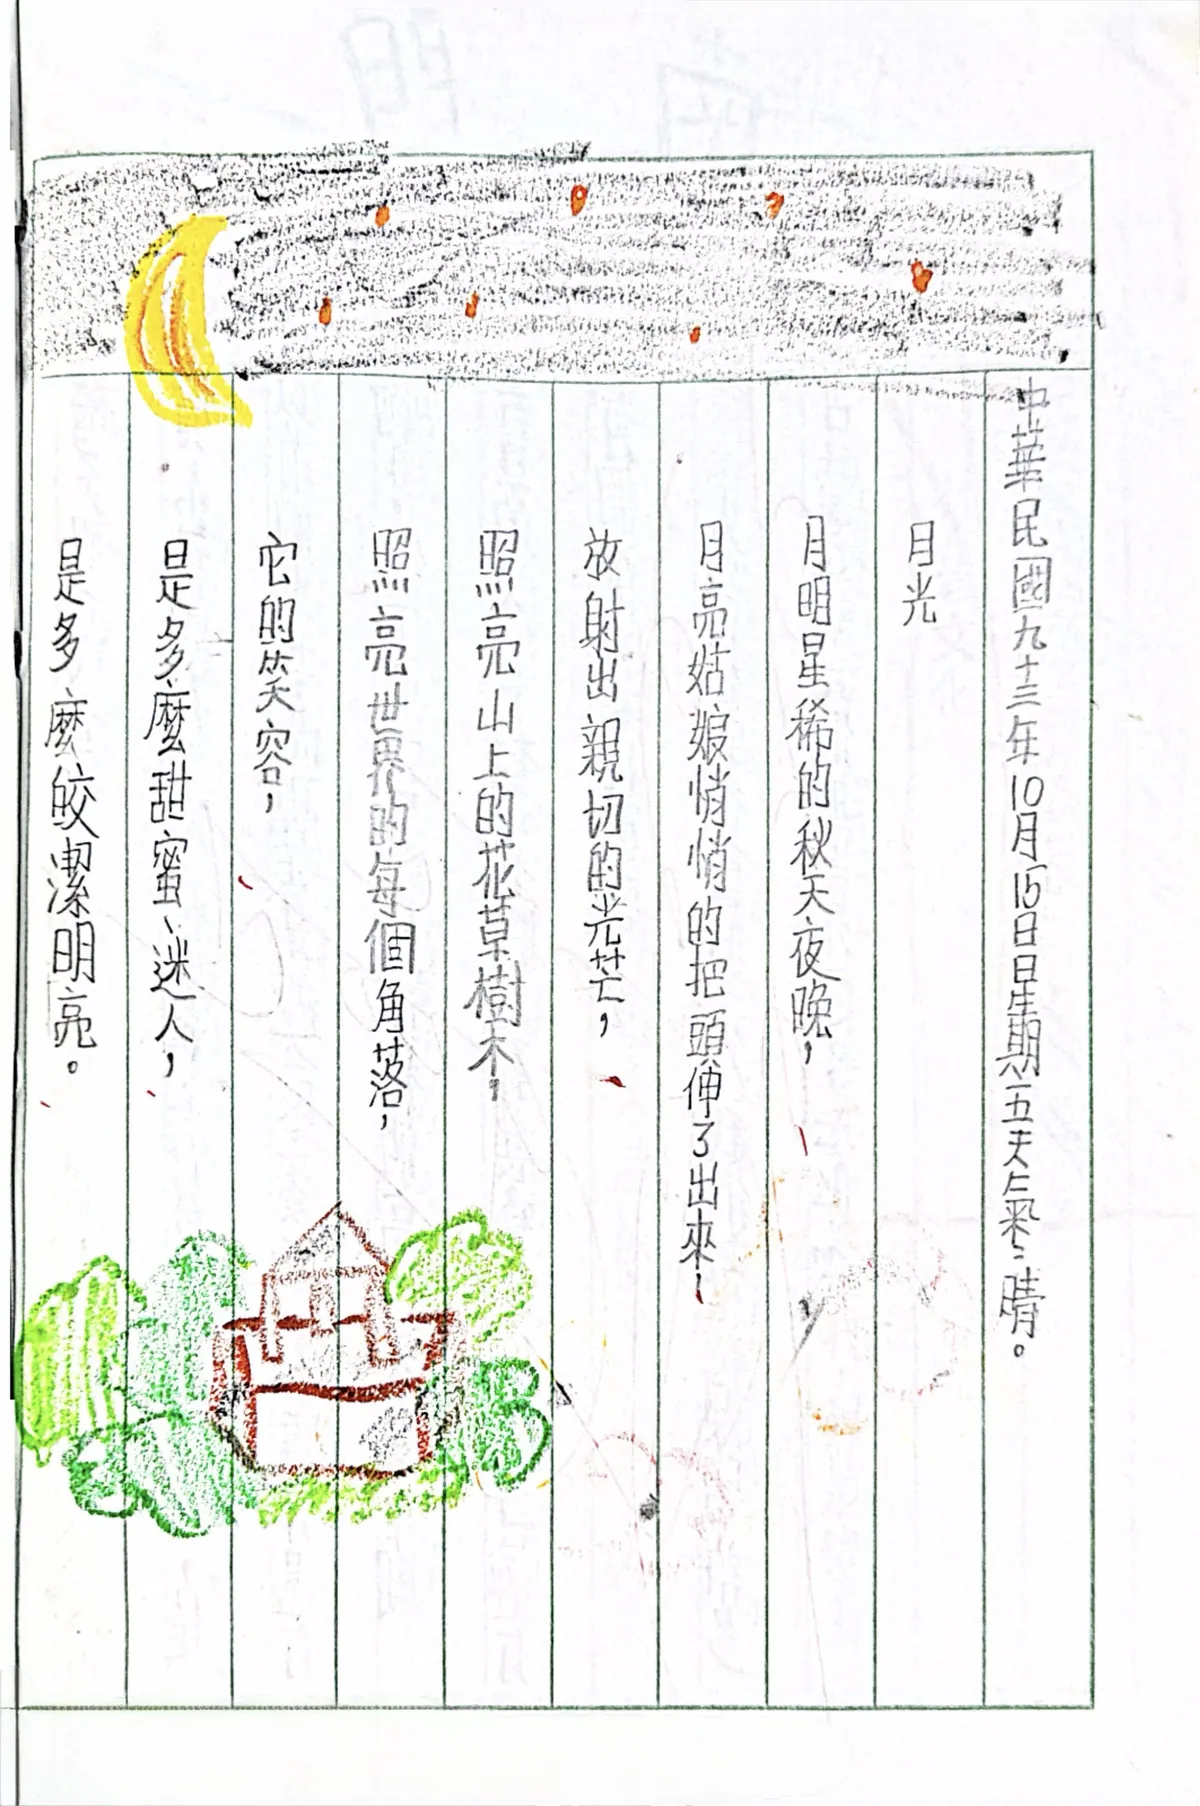 中華民國九十三年10月15日星期五天氣：晴。
月光
月明星稀的秋天夜晚，
月亮姑娘悄悄的把頭伸了出來，
放射出親切的光芒，
照亮山上的花草樹木，
照亮世界的每個角落，
它的笑容，
是多麼甜蜜、迷人，
是多麼皎潔明亮。